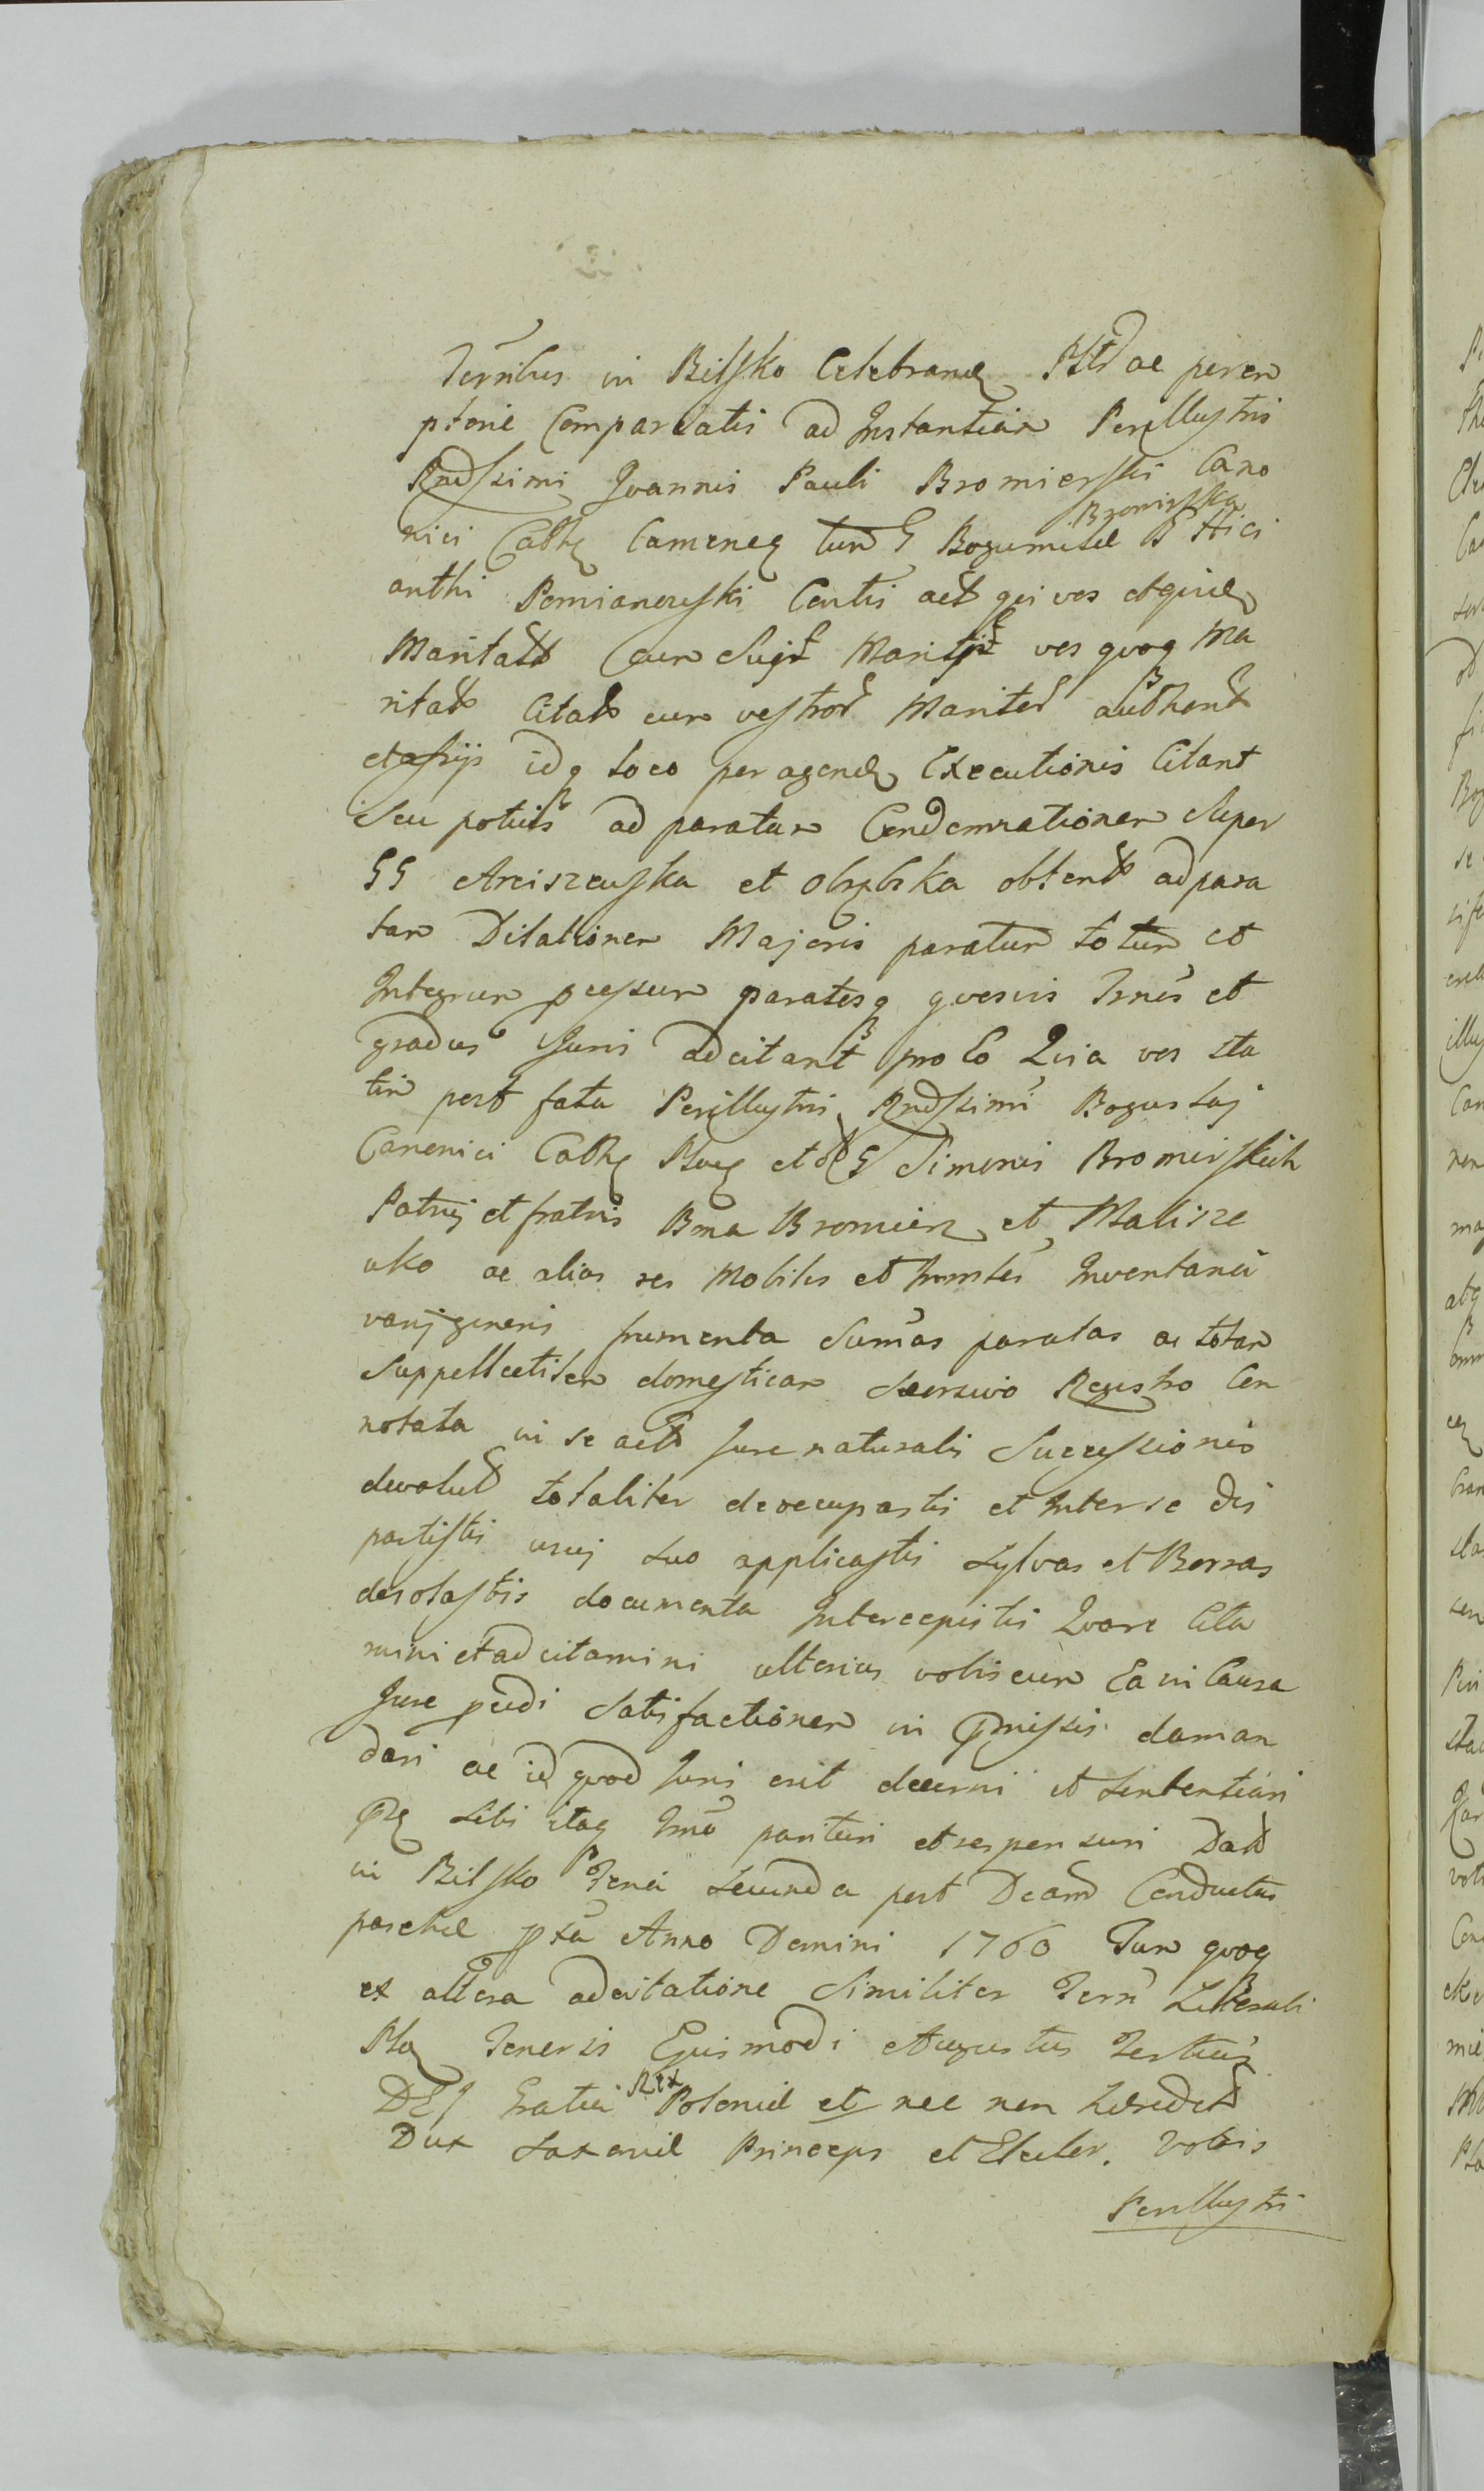 in Bilsko Celebrand ac perem
ptorie Compareatis ad Instantiam Perillustris
Rndssimi Joannis Pauli Bromierski Cano
nici Cathq Cameneq tum G Bogumilæ Bromirska Hici
anthi Pomianowski Centis act qui vos
Maritat Cum Maritis vos quoq Ma
ritat Citat cum vestror Maritor authent
idq loco peragend Executionis Citant
Seu potius ad paratam Condemnationem Super
GG Arciszewska et obtent ad para
tam Dilationem Majoris paratum totum et
Integrum pcessum paratosq quosvis Trnos et
gradus Juris adcitant pro Eo Quia vos sta
tim post fata Perillustris Rndssimi Boguslaj
Canonici Cathq Ploc et G Simonis Bromirskich
Patruj et fratris Bona Bromierz et Malisze
wko ac alias res Mobiles et Immles Inventarii
varij generis frumenta Sumas paratas ac totam
Suppellectilem domesticam Seorsivo Registro Con
notata in se act Jure naturalis Successionis
devolut totaliter deoccupastis et Inter se dis
partistis usuj suo applicastis Sylvas et Borras
desolastis documenta Intercepistis Quare Cita
mini et adcitamini ulterius vobiscum Ea in Causa
Jure pcedi Satisfactionem in pmissis deman
dari ac id quod Juris erit decerni et Sententiari
sibi itaq Trno parituri et responsuri Dat
in Bilsko Feria Secunda post Dcam Conductus
paschæ pxa Anno Domini 1760 Tum quoq
ex altera adcitatione Similiter Terri Litterali
Ploc Tenoris Ejusmodi Augustus Tertius
DEJ Gratia Rex Poloniæ et nec non Hæredit
Dux Saxoniæ Princeps et Elector. Vobis
Perillustri